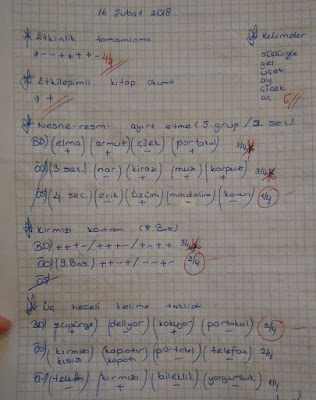 16 Şubat 2018
* Etkinlik tamamlama
→ - - + + + + - 4/4
* Kelimeler
süpürge
gel
uçak
ay
çiçek
aç
* Etkileşimli kitap okuma
→ +
* Nesne resmi ayırt etme (5. grup / 3. seç.)
BD) (elma) (armut) (çilek) (portakal) 3/4
+ + - +
ÖS) (3 seç.) (nar) (kiraz) (muz) (karpuz) 3/4
ÖS) (4 seç.) (erik) (üzüm) (mandalina) (kavun) 1/4
* Kırmızı kavram (8. Bas.)
BD) + + + - / + + + - / + - + + 3/4
ÖS) (9. Bas.) + + - + / - - + - 2/4
ÖS)
* Üç heceli kelime taklidi
BD) (süpürge) (deliyor) (kokuyor) (portakal) 2/4
ÖS) (kırmızı) (kapatır) (portakal) (telefon) 2/4
ÖS) (telefon) (kırmızı) (bileklik) (yorgunluk) 1/4